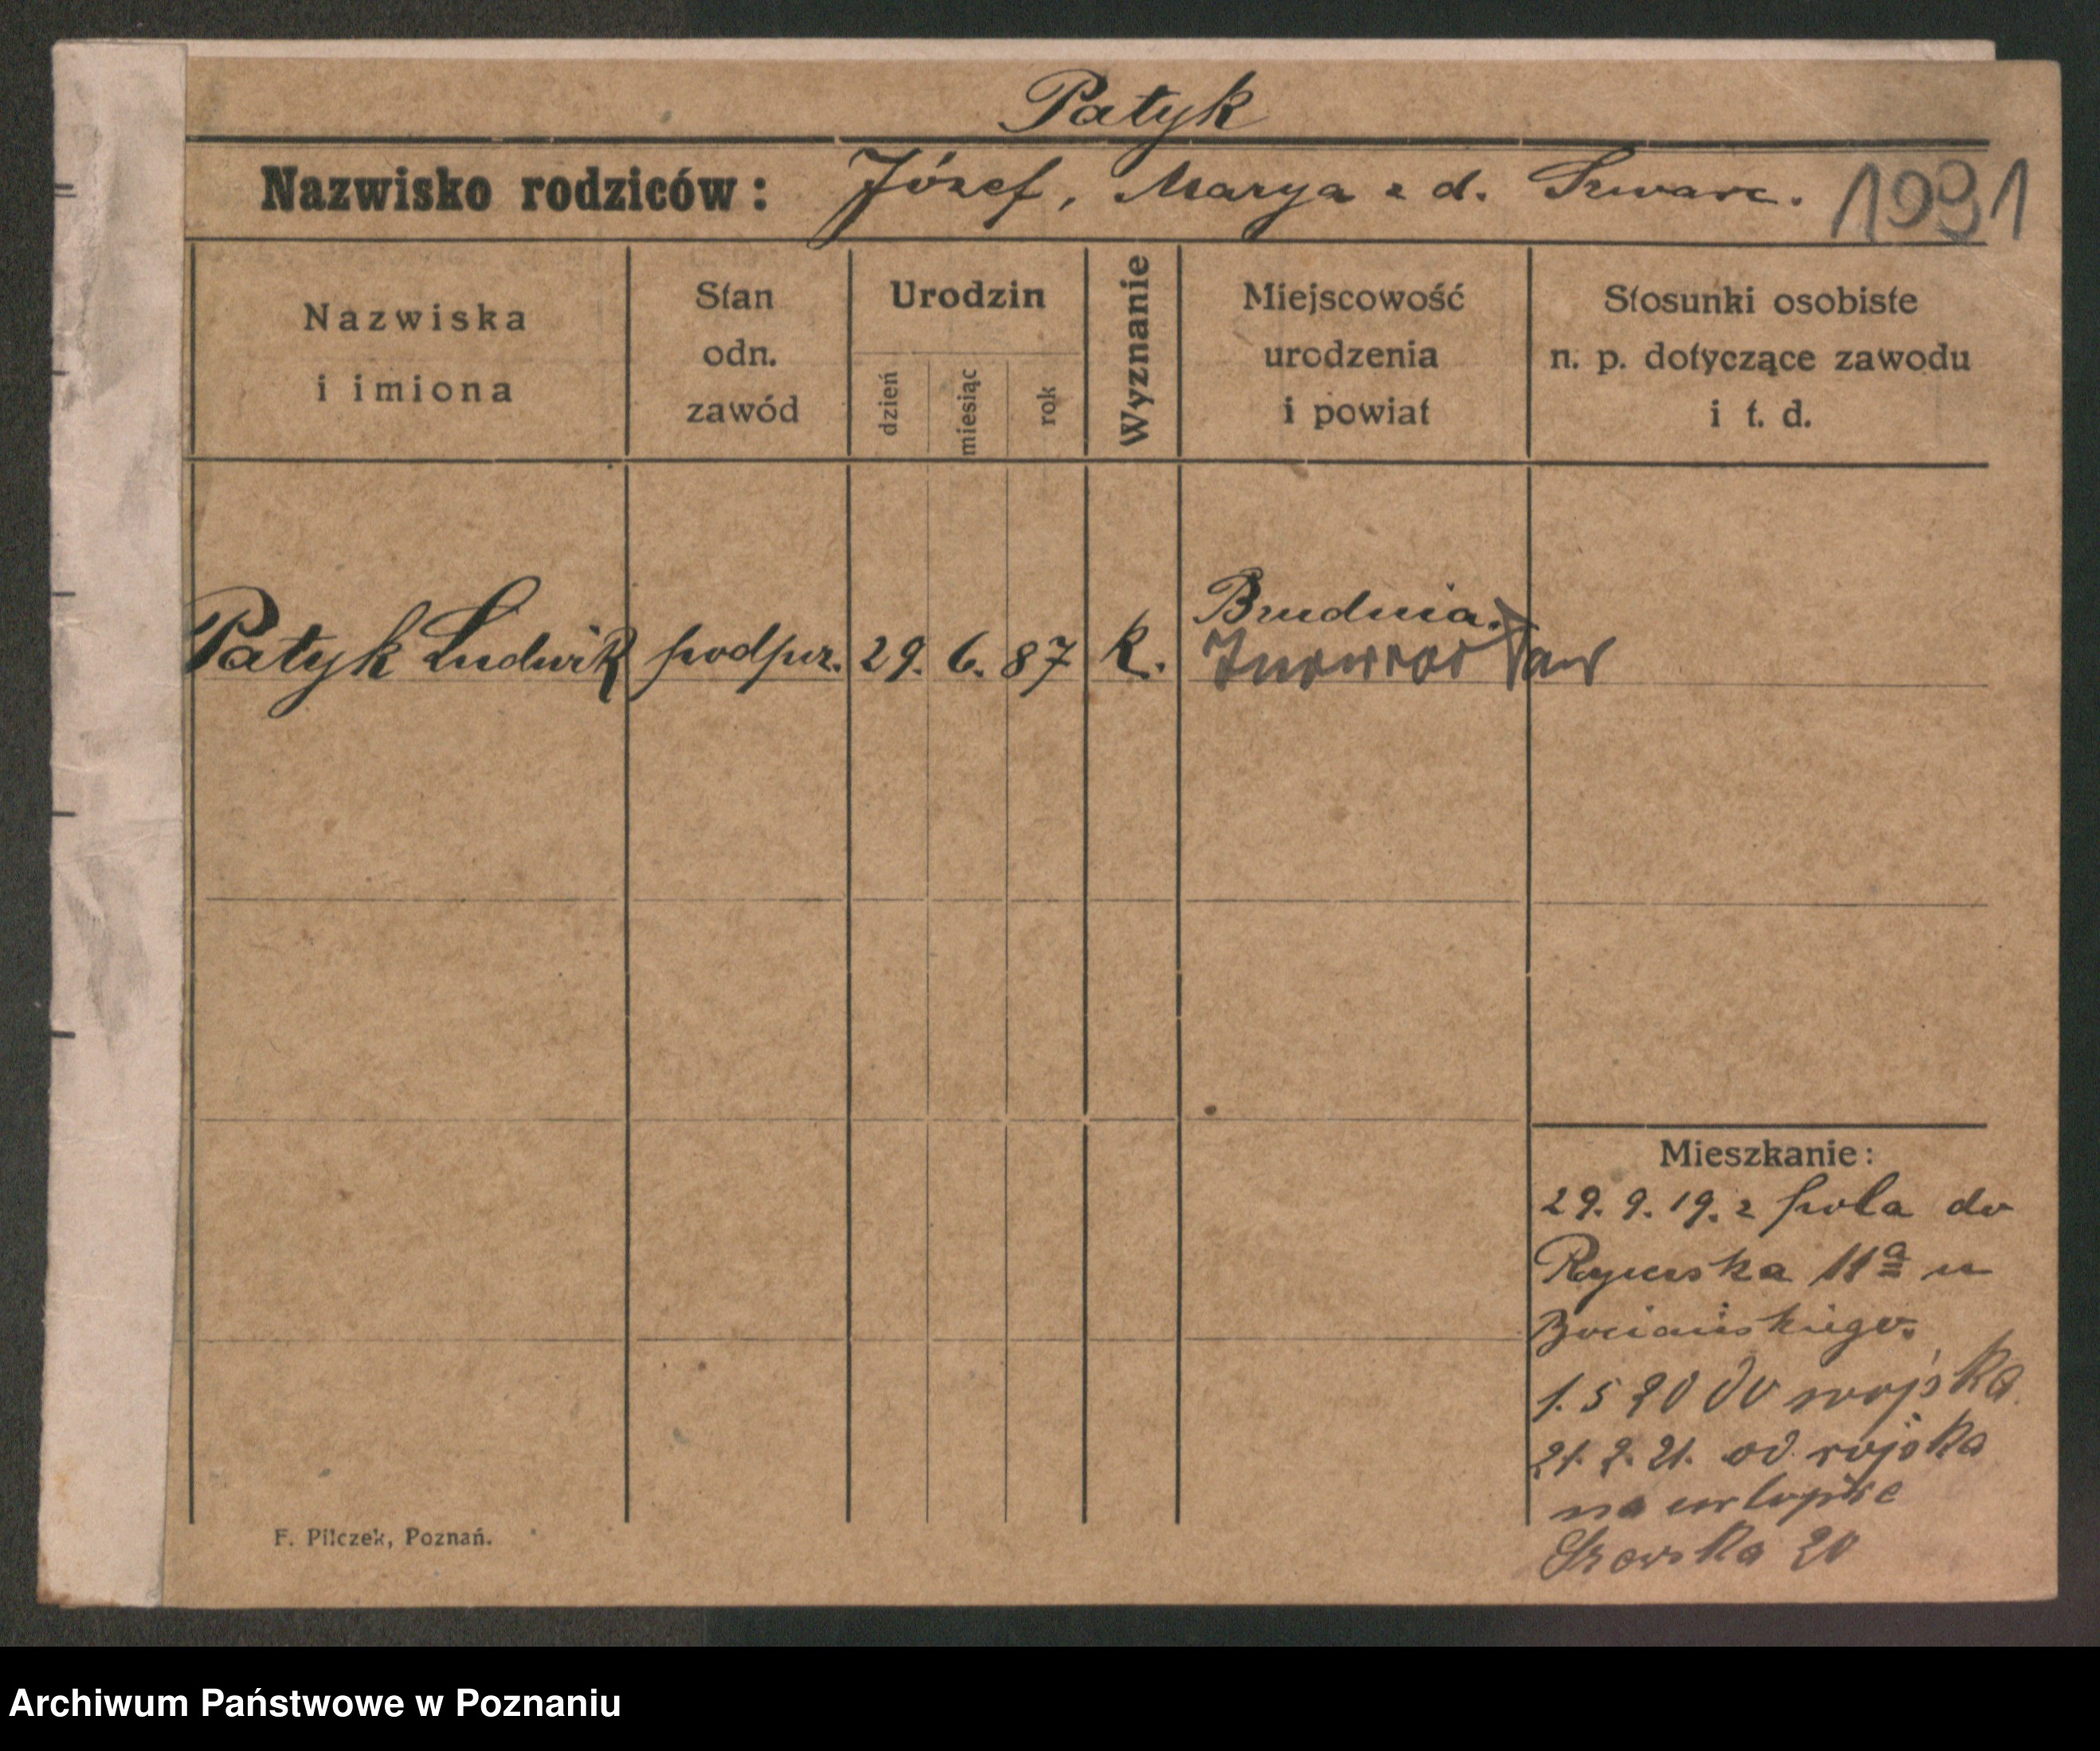 Patyk
Nazwisko rodziców: Józef, Marya z d. Szwarc. 1991
Nazwiska
i imiona
Stan
odn.
zawód
Urodzin
dzień
miesiąc
rok
Wyznanie
Miejscowość
urodzenia
i powiat
Stosunki osobiste
n. p. dotyczące zawodu
i t. d.
Brudnia.
Patyk Ludwik podpor. 29. 6. 87 k. Inowrocław
Mieszkanie:
29. 9. 19. z pola do
11a u
Bociańskiego.
1. 5 20 do wojska
21. 2. 21. od wojska
na urlopie
20
F. Pilczek, Poznań.
Archiwum Państwowe w Poznaniu